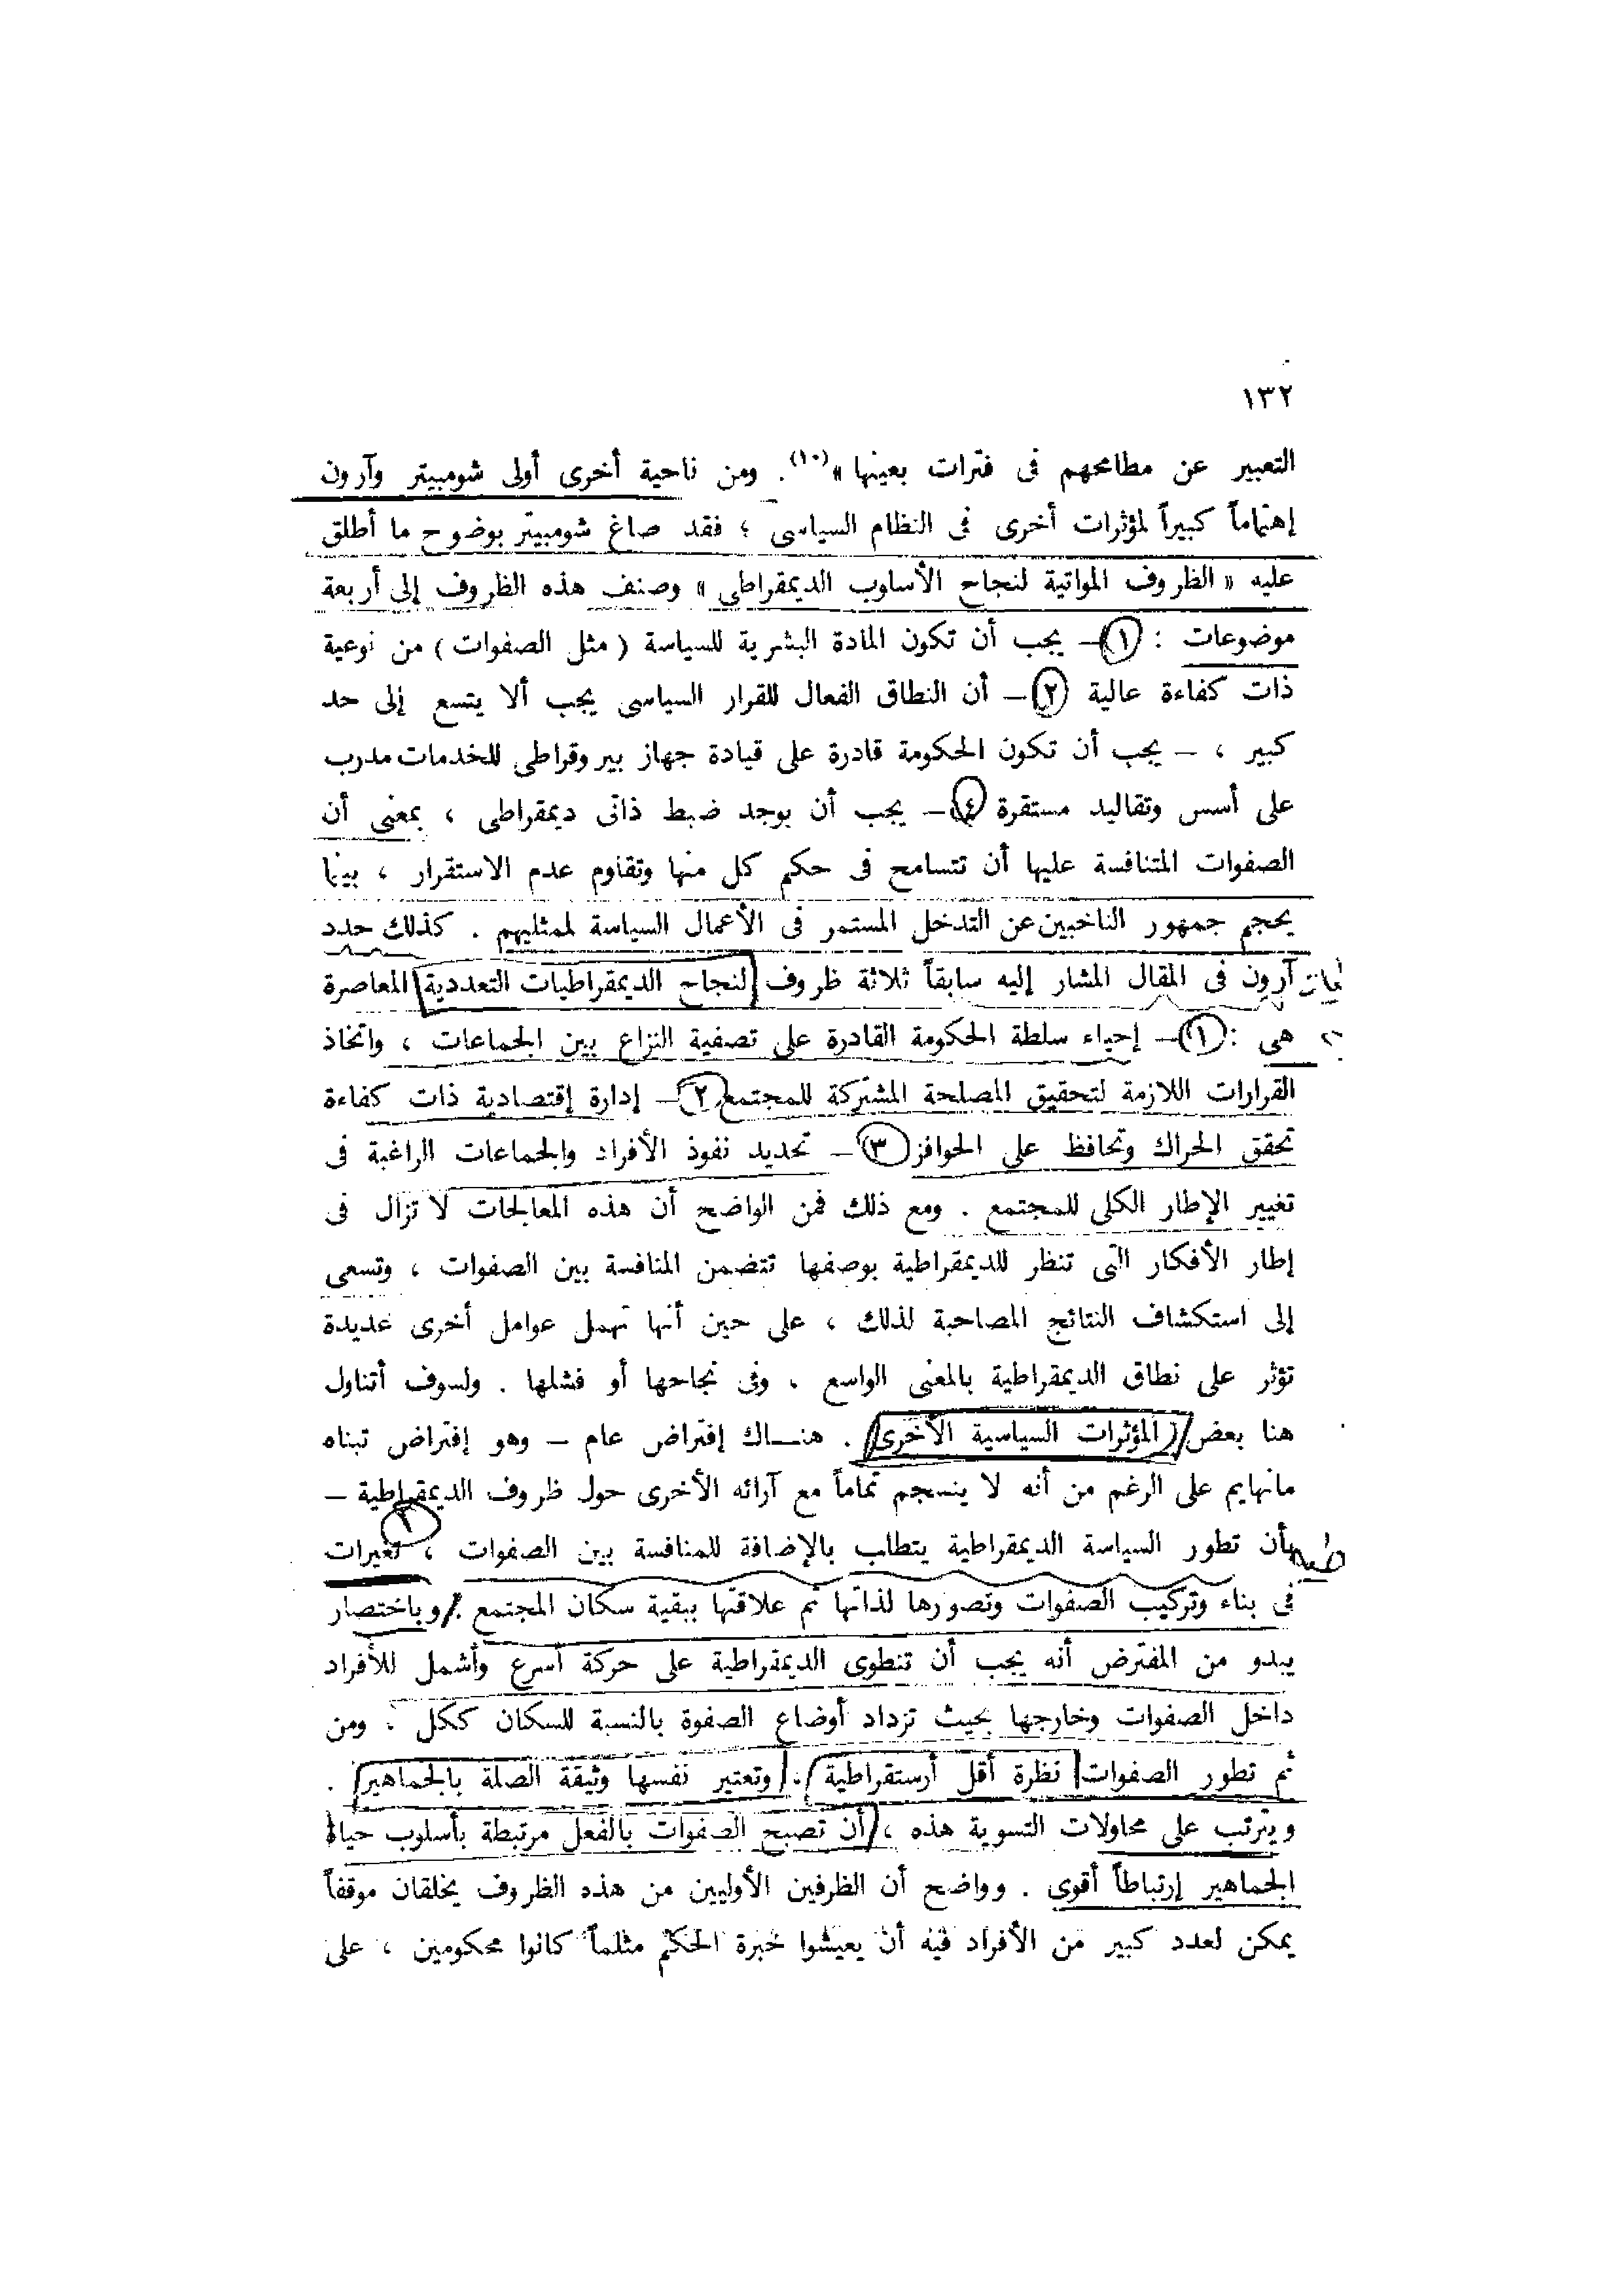 ١٣٢
التعبير عن مطامحهم فى فترات بعينها »(١٠). ومن ناحية أخرى أولى شومبيتر وآرون
إهتماماً كبيراً لمؤثرات أخرى فى النظام السياسى ؛ فقد صاغ شومبيتر بوضوح ما أطلق
عليه « الظروف المواتية لنجاح الأسلوب الديمقراطى » وصنف هذه الظروف إلى أربعة
موضوعات : ١ – يجب أن تكون المادة البشرية للسياسة ( مثل الصفوات ) من نوعية
ذات كفاءة عالية ٢ – أن النطاق الفعال للقرار السياسى يجب ألا يتسع إلى حد
كبير ، – يجب أن تكون الحكومة قادرة على قيادة جهاز بيروقراطى للخدمات مدرب
على أسس وتقاليد مستقرة ٤ – يجب أن يوجد ضبط ذاتى ديمقراطى ، بمعنى أن
الصفوات المتنافسة عليها أن تتسامح فى حكم كل منها وتقاوم عدم الاستقرار ، بينما
يحجم جمهور الناخبين عن التدخل المستمر فى الأعمال السياسة لممثليهم . كذلك حدد
آرون فى المقال المشار إليه سابقاً ثلاثة ظروف لنجاح الديمقراطيات التعددية المعاصرة
هى : ١ – إحياء سلطة الحكومة القادرة على تصفية النزاع بين الجماعات ، واتخاذ
القرارات اللازمة لتحقيق المصلحة المشتركة للمجتمع ٢ – إدارة إقتصادية ذات كفاءة
تحقق الحراك وتحافظ على الحوافز ٣ – تحديد نفوذ الأفراد والجماعات الراغبة فى
تغيير الإطار الكلى للمجتمع . ومع ذلك فمن الواضح أن هذه المعالجات لا تزال فى
إطار الأفكار التى تنظر للديمقراطية بوصفها تتضمن المنافسة بين الصفوات ، وتسعى
إلى استكشاف النتائج المصاحبة لذلك ، على حين أنها تهمل عوامل أخرى عديدة
تؤثر على نطاق الديمقراطية بالمعنى الواسع ، وفى نجاحها أو فشلها . ولسوف أتناول
هنا بعض المؤثرات السياسية الأخرى . هنـــاك إفتراض عام – وهو إفتراض تبناه
مانهايم على الرغم من أنه لا ينسجم تماماً مع آرائه الأخرى حول ظروف الديمقراطية –
بأن تطور السياسة الديمقراطية يتطلب بالإضافة للمنافسة بين الصفوات ، تغيرات
فى بناء وتركيب الصفوات وتصورها لذاتها ثم علاقتها ببقية سكان المجتمع ؛ وباختصار
يبدو من المفترض أنه يجب أن تنطوى الديمقراطية على حركة أسرع وأشمل للأفراد
داخل الصفوات وخارجها بحيث تزداد أوضاع الصفوة بالنسبة للسكان ككل . ومن
ثم تطور الصفوات نظرة أقل أرستقراطية ، وتعتبر نفسها وثيقة الصلة بالجماهير .
ويترتب على محاولات التسوية هذه ، أن تصبح الصفوات بالفعل مرتبطة بأسلوب حياة
الجماهير إرتباطاً أقوى . وواضح أن الظرفين الأوليين من هذه الظروف يخلقان موقفاً
يمكن لعدد كبير من الأفراد فيه أن يعيشوا خبرة الحكم مثلما كانوا محكومين ، على